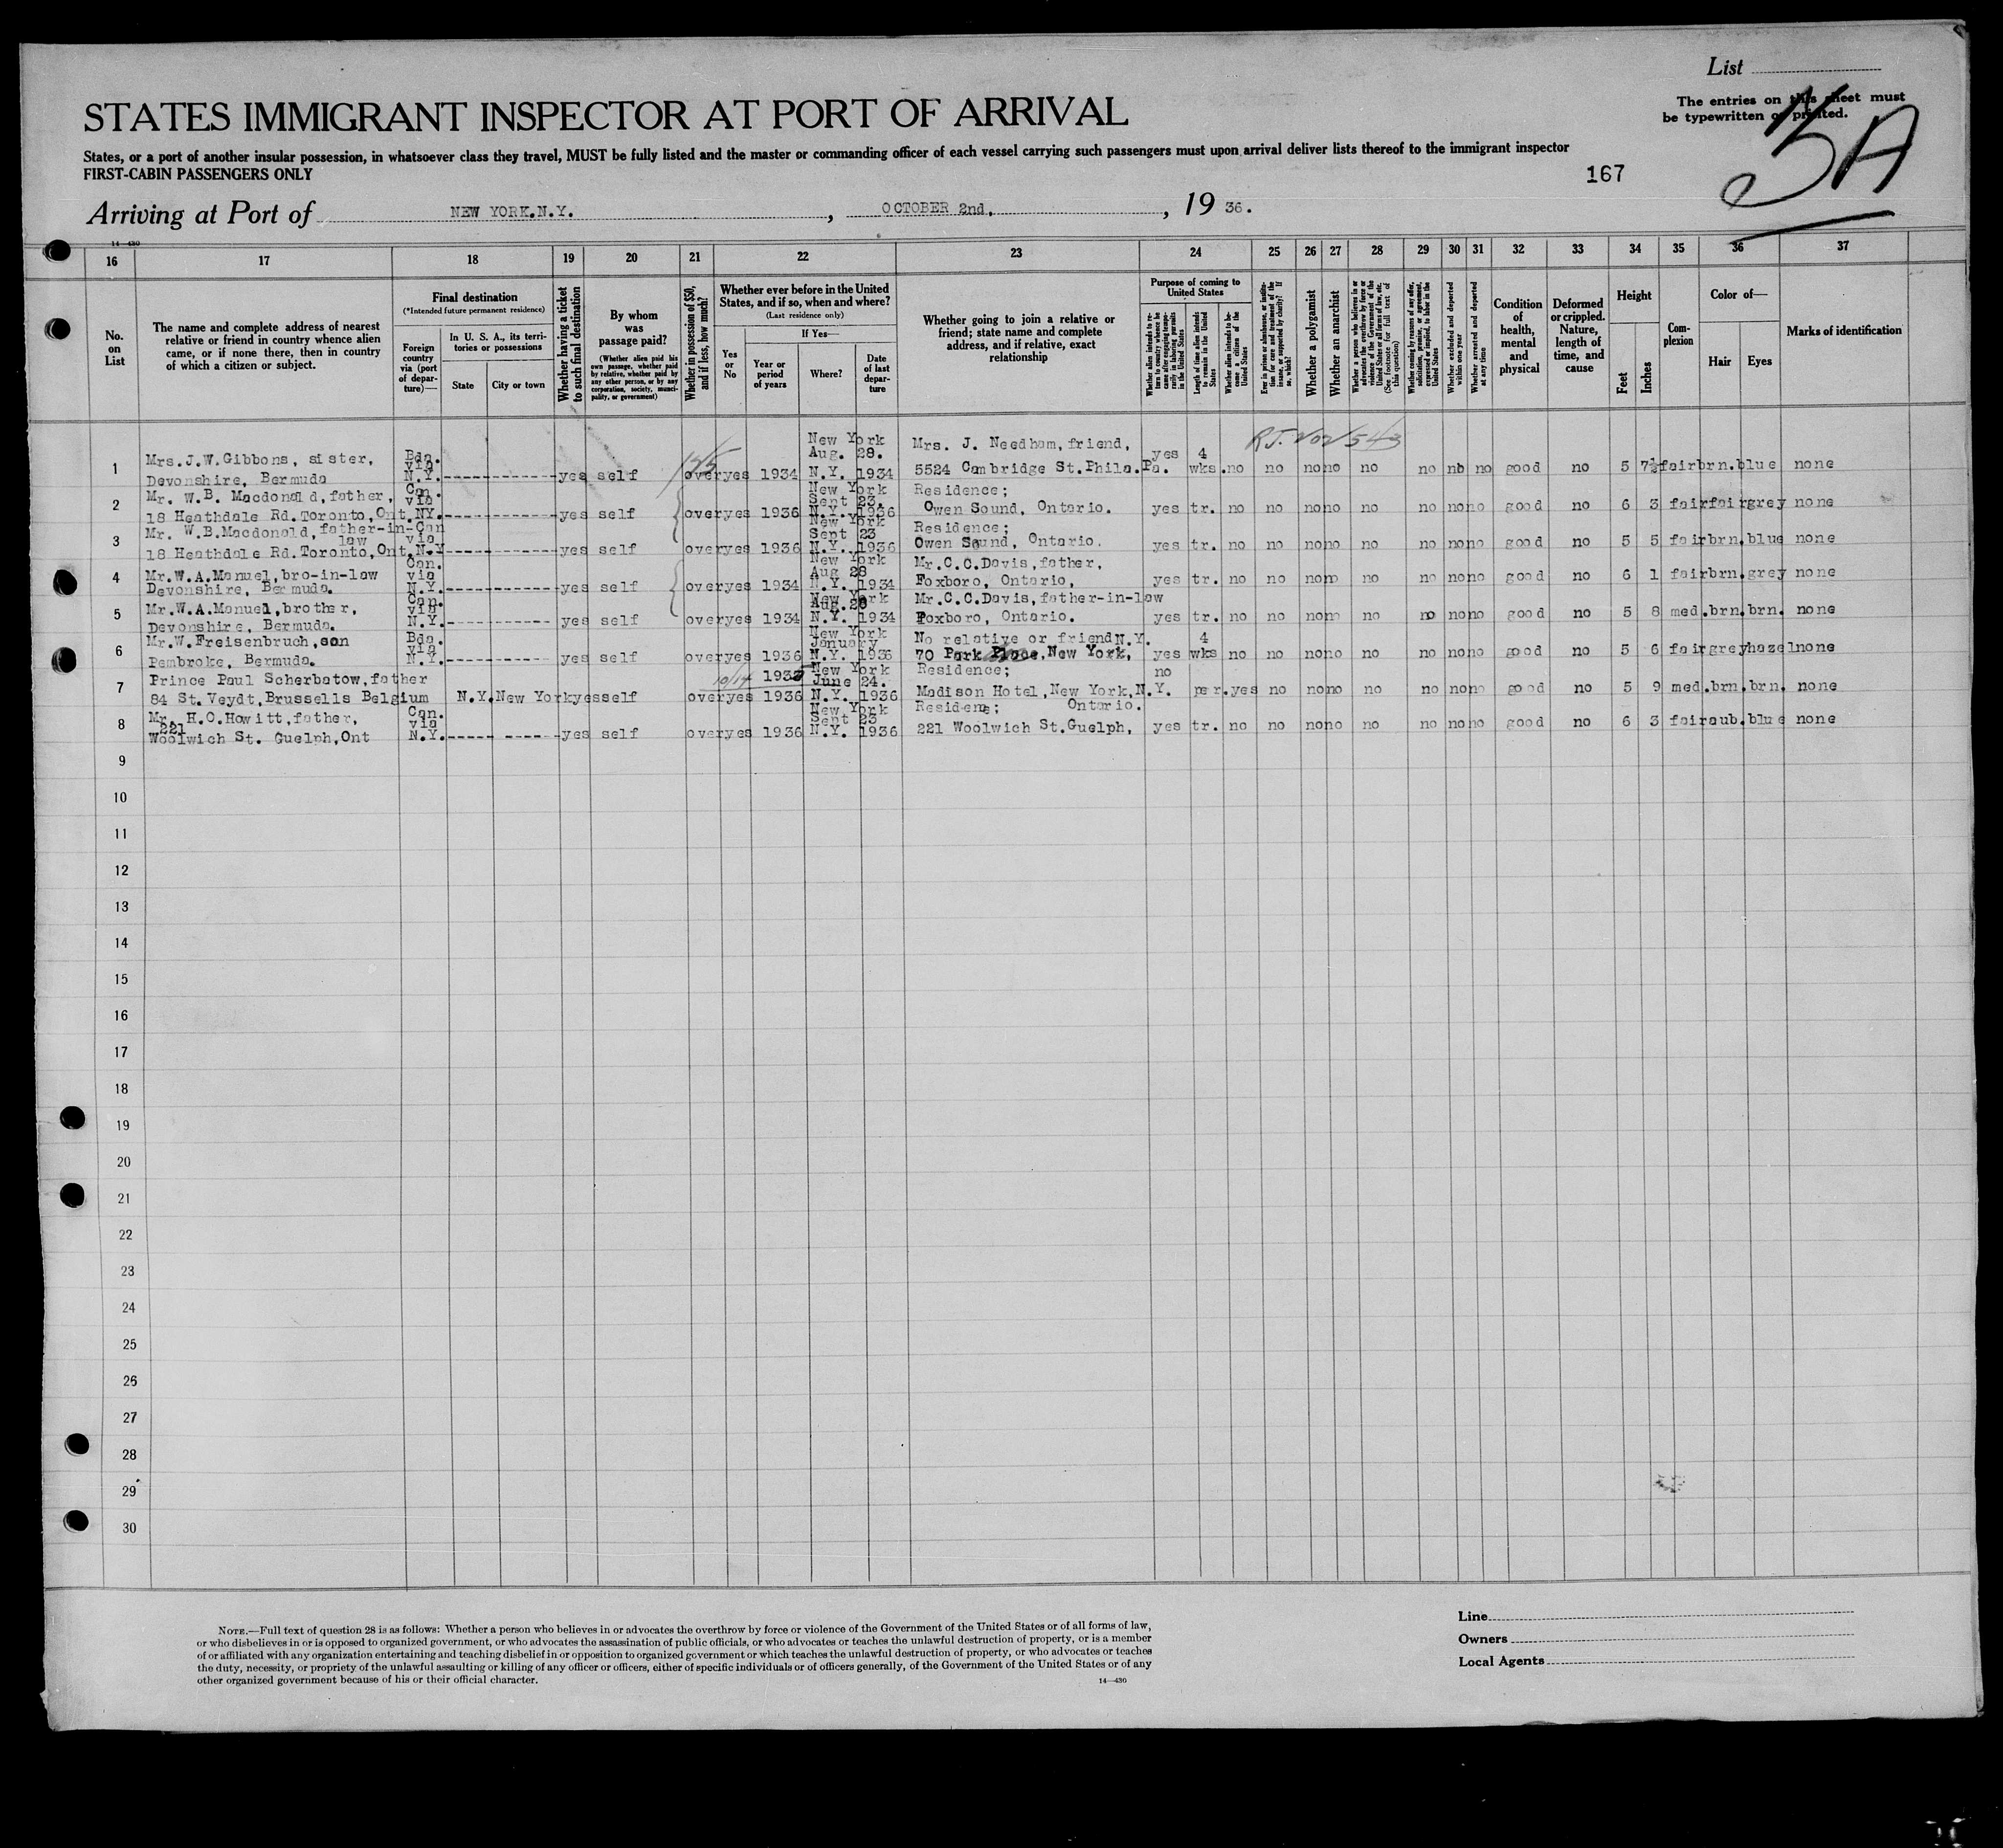 List
The entries on this sheet must
be typewritten or printed.
5A
STATES IMMIGRANT INSPECTOR AT PORT OF ARRIVAL
States, or a port of another insular possession, in whatsoever class they travel, MUST be fully listed and the master or commanding officer of each vessel carrying such passengers must upon arrival deliver lists thereof to the immigrant inspector
FIRST-CABIN PASSENGERS ONLY
167
Arriving at Port of NEW YORK.N.Y. , OCTOBER 2nd. , 19 36.
14-430
16 17 18 19 20 21 22 23 24 25 26 27 28 29 30 31 32 33 34 35 36 37
No. on List
The name and complete address of nearest relative or friend in country whence alien came, or if none there, then in country of which a citizen or subject.
Final destination
(*Intended future permanent residence)
Foreign country via (port of departure)—
In U. S. A., its territories or possessions
State
City or town
Whether having a ticket to such final destination
By whom was passage paid?
(Whether alien paid his own passage, whether paid by relative, whether paid by any other person, or by any corporation, society, municipality, or government)
Whether in possession of $50, and if less, how much?
Whether ever before in the United States, and if so, when and where?
(Last residence only)
Yes or No
If Yes—
Year or period of years
Where?
Date of last departure
Whether going to join a relative or friend; state name and complete address, and if relative, exact relationship
Purpose of coming to United States
Whether alien intends to return to country whence he came after engaging temporarily in laboring pursuits in the United States
Length of time alien intends to remain in the United States
Whether alien intends to become a citizen of the United States
Ever in prison or almshouse, or institution for care and treatment of the insane, or supported by charity? If so, which?
Whether a polygamist
Whether an anarchist
Whether a person who believes in or advocates the overthrow by force or violence of the Government of the United States or all forms of law, etc. (See footnote for full text of this question)
Whether coming by reasons of any offer, solicitation, promise, or agreement, expressed or implied, to labor in the United States
Whether excluded and deported within one year
Whether arrested and deported at any time
Condition of health, mental and physical
Deformed or crippled. Nature, length of time, and cause
Height
Feet
Inches
Complexion
Color of—
Hair
Eyes
Marks of identification
1 Mrs.J.W.Gibbons, sister, Devonshire, Bermuda Bda. via N.Y. yes self over yes 1934 New York N.Y. Aug. 28. 1934 Mrs. J. Needham, friend, 5524 Cambridge St.Phila.Pa. yes 4 wks. no no no no no no no no good no 5 7½ fair brn. blue none
2 Mr. W.B. Macdonald, father, 18 Heathdale Rd.Toronto,Ont. Can. via NY. yes self over yes 1936 New York N.Y. Sept 23. 1936 Residence; Owen Sound, Ontario. yes tr. no no no no no no no no good no 6 3 fair fair grey none
3 Mr. W.B.Macdonald, father-in-law 18 Heathdale Rd.Toronto,Ont. Can via N.Y yes self over yes 1936 New York N.Y. Sept 23 1936 Residence; Owen Sound, Ontario. yes tr. no no no no no no no no good no 5 5 fair brn. blue none
4 Mr.W.A.Manuel, bro-in-law Devonshire, Bermuda. Can. via N.Y. yes self over yes 1934 New York N.Y. Aug 28 1934 Mr.C.C.Davis, father, Foxboro, Ontario, yes tr. no no no no no no no no good no 6 1 fair brn. grey none
5 Mr.W.A.Manuel, brother, Devonshire, Bermuda. Can. via N.Y. yes self over yes 1934 New York N.Y. Aug.28 1934 Mr.C.C.Davis, father-in-law Foxboro, Ontario. yes tr. no no no no no no no no good no 5 8 med. brn. brn. none
6 Mr.W.Freisenbruch, son Pembroke, Bermuda. Bda. via N.Y. yes self over yes 1936 New York N.Y. January 1936 No relative or friend N.Y. 70 Park Place, New York, yes 4 wks no no no no no no no no good no 5 6 fair grey hazel none
7 Prince Paul Scherbatow, father 84 St.Veydt, Brussells Belgium N.Y. New York yes self over 10/14 yes 1935 1936 New York N.Y. June 24. 1936 Residence; Madison Hotel, New York, N.Y. no per. yes no no no no no no no good no 5 9 med. brn. brn. none
8 Mr. H.O.Howitt, father, 221 Woolwich St. Guelph, Ont Can. via N.Y. yes self over yes 1936 New York N.Y. Sept 23 1936 Residene; 221 Woolwich St.Guelph, Ontario. yes tr. no no no no no no no no good no 6 3 fair aub. blue none
9
10
11
12
13
14
15
16
17
18
19
20
21
22
23
24
25
26
27
28
29
30
NOTE.—Full text of question 28 is as follows: Whether a person who believes in or advocates the overthrow by force or violence of the Government of the United States or of all forms of law,
or who disbelieves in or is opposed to organized government, or who advocates the assassination of public officials, or who advocates or teaches the unlawful destruction of property, or is a member
of or affiliated with any organization entertaining and teaching disbelief in or opposition to organized government or which teaches the unlawful destruction of property, or who advocates or teaches
the duty, necessity, or propriety of the unlawful assaulting or killing of any officer or officers, either of specific individuals or of officers generally, of the Government of the United States or of any
other organized government because of his or their official character.
14—430
Line
Owners
Local Agents